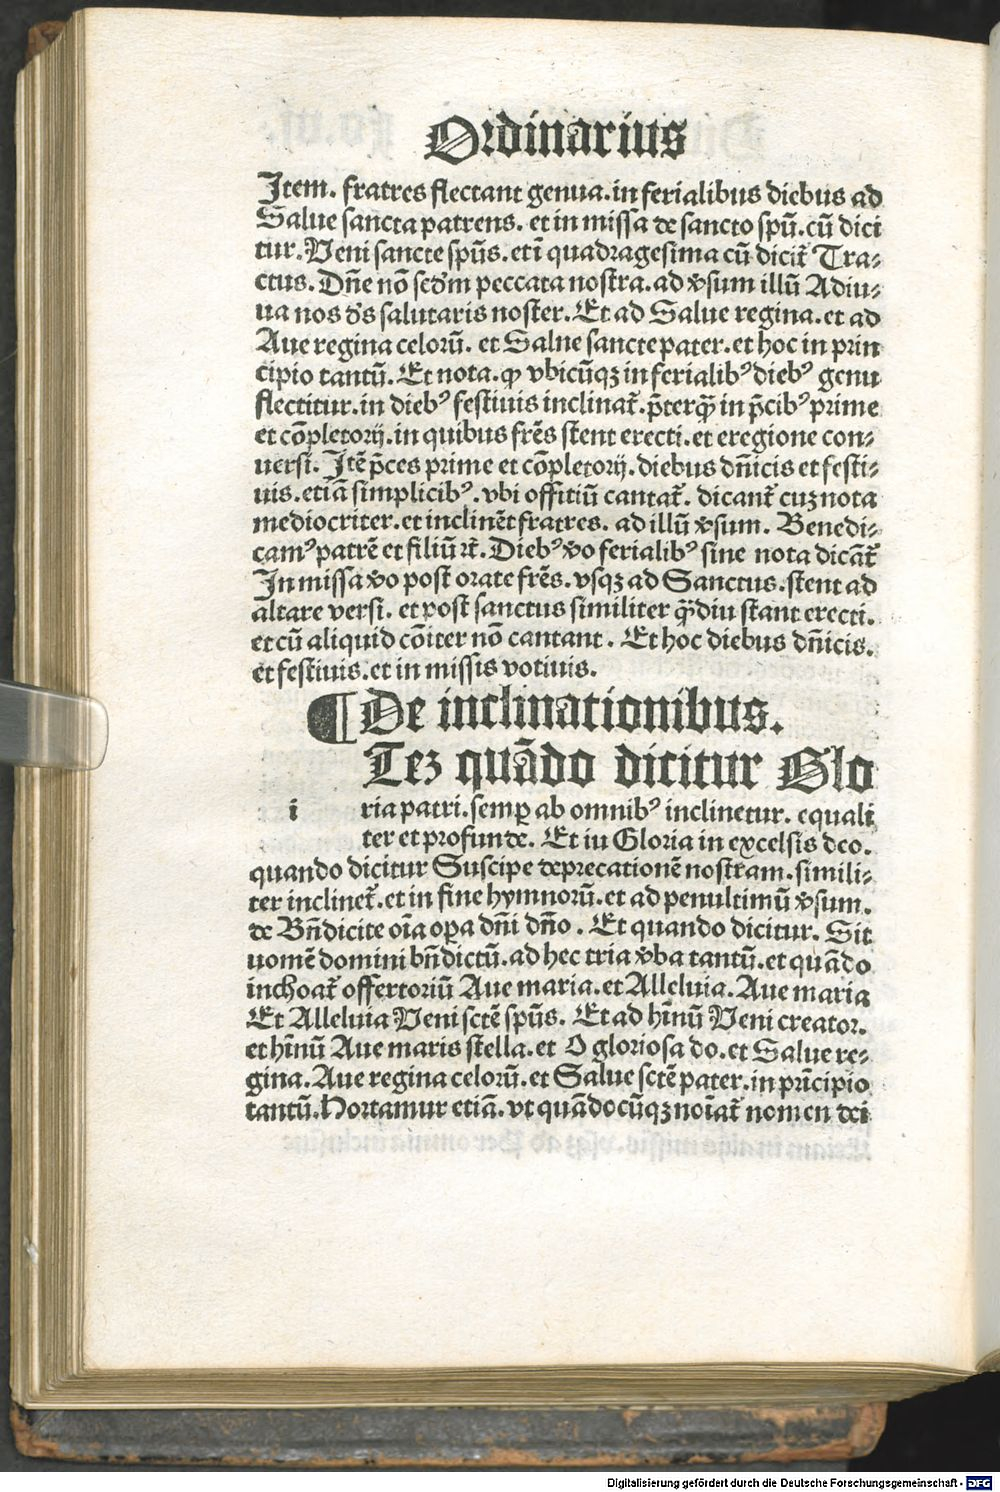 Ordinarius
Item. fratres flectant genua. in ferialibus diebus ad
Salue sancta patrens. et in missa de sancto spū. cū dici
tur. Veni sancte spūs. et ī quadragesima cū dicit᷑ Tra⸗
ctus. Dn̄e nō scd̓m peccata nostra. ad v̓sum illū Adiu⸗
ua nos d̓s salutaris noster. Et ad Salue regina. et ad
Aue regina celorū. et Salue sancte pater. et hoc in prin
cipio tantū. Et nota. ꝙ vbicūqꝫ in ferialibꝰ diebꝰ genu
flectitur. in diebꝰ festiuis inclinat᷑. p̄terq̄ȝ in p̄cibꝰ prime
et cōpletorij. in quibus frēs stent erecti. et eregione con⸗
uersi. Itē p̄ces prime et cōpletorij. diebus dn̄icis et festi⸗
uis. etiā simplicibꝰ. vbi offitiū cantat᷑. dicant᷑ cuꝫ nota
mediocriter. et inclinēt fratres. ad illū v̓sum. Benedi⸗
camꝰ patrē et filiū ꝛc̄. Diebꝰ v̓o ferialibꝰ sine nota dicāt᷑
In missa v̓o post orate frēs. vsqꝫ ad Sanctus. stent ad
altare versi. et post sanctus similiter q̄ȝdiu stant erecti.
et cū aliquid cōiter nō cantant. Et hoc diebus dn̄icis.
et festiuis. et in missis votiuis.
¶ De inclinationibus.
Teꝫ quādo dicitur Glo
i ria patri. semꝑ ab omnibꝰ inclinetur. equali
ter et profunde. Et iu Gloria in excelsis deo.
quando dicitur Suscipe deprecationē nostram. simili⸗
ter inclinet᷑. et in fine hymnorū. et ad penultimū v̓sum.
de Bn̄dicite oīa oꝑa dn̄i dn̄o. Et quando dicitur. Sit
uomē domini bn̄dictū. ad hec tria v̓ba tantū. et quādo
inchoat᷑ offertoriū Aue maria. et Alleluia. Aue maria
Et Alleluia Veni sctē spūs. Et ad hīnū Veni creator.
et hīnū Aue maris stella. et O gloriosa do. et Salue re⸗
gina. Aue regina celorū. et Salue sctē pater. in prīcipio
tantū. Hortamur etiā. vt quādocūqꝫ noīat᷑ nomen dei
Digitalisierung gefördert durch die Deutsche Forschungsgemeinschaft - DFG